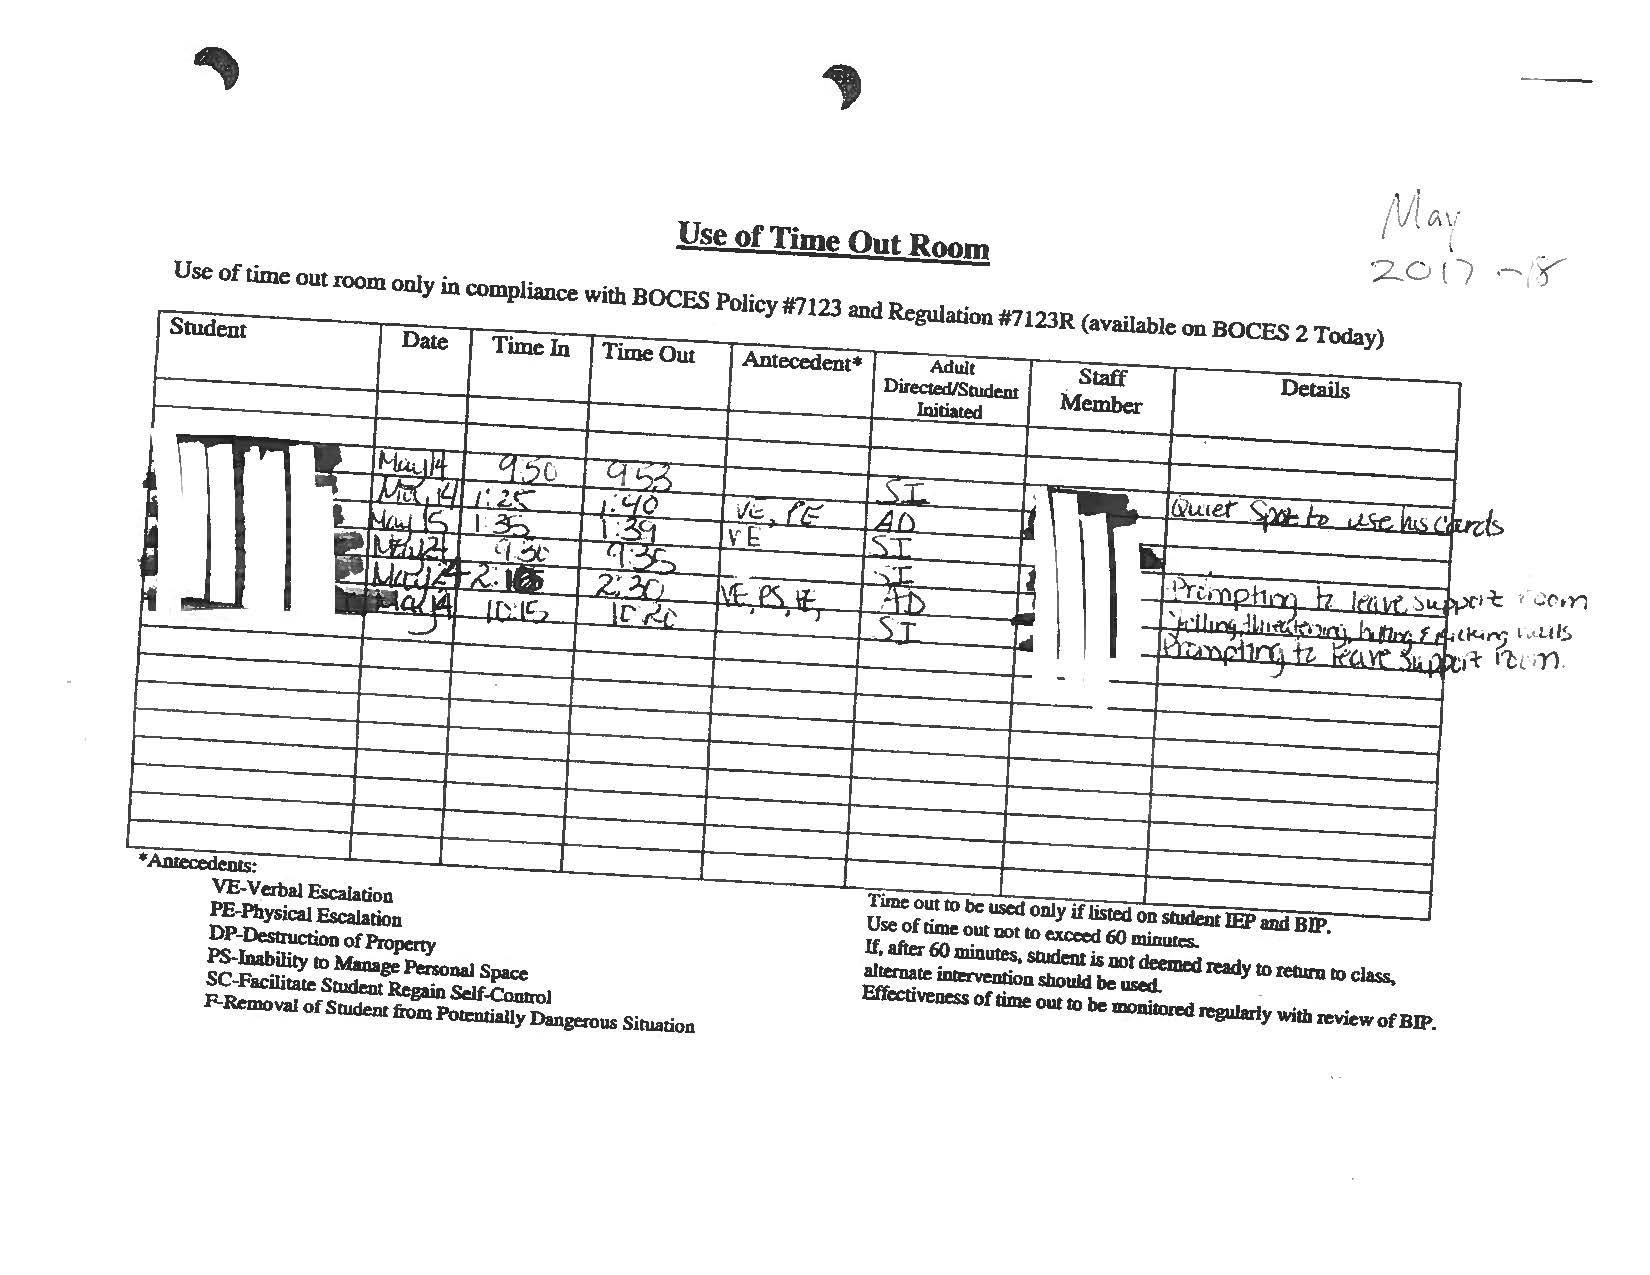 May
2017-18
Use of Time Out Room
Use of time out room only in compliance with BOCES Policy #7123 and Regulation #7123R (available on BOCES 2 Today)
Student Date Time In Time Out Antecedent* Adult Directed/Student Initiated Staff Member Details
May 14 9:50 9:53 SI Quiet Spot to use his cards
May 14 1:25 1:40 VE, PE AD
May 15 1:35 1:39 VE SI
9:30 9:35 SI Prompting to leave support room
May 24 2:30 VE, PS, AD Yelling, threatening, hitting & kicking walls
May 14 10:15 10:20 SI Prompting to leave support room.
*Antecedents:
VE-Verbal Escalation
PE-Physical Escalation
DP-Destruction of Property
PS-Inability to Manage Personal Space
SC-Facilitate Student Regain Self-Control
F-Removal of Student from Potentially Dangerous Situation
Time out to be used only if listed on student IEP and BIP.
Use of time out not to exceed 60 minutes.
If, after 60 minutes, student is not deemed ready to return to class,
alternate intervention should be used.
Effectiveness of time out to be monitored regularly with review of BIP.